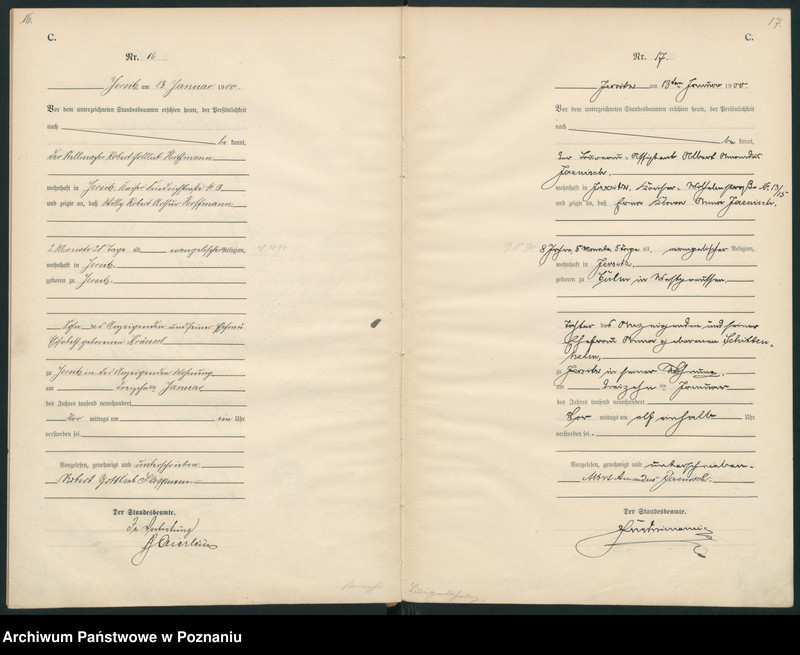 16.
C.
Nr. 16
Jersitz am 13 Januar 1900.
Vor dem unterzeichneten Standesbeamten erschien heute, der Persönlichkeit
nach
be kannt,
Robert Gottlieb Hoffmann
wohnhaft in Jersitz
und zeigte an, daß Willy Robert Arthur Hoffmann
2 Monate 21 Tage alt, evangelischer Religion,
wohnhaft in Jersitz
geboren zu Jersitz
Sohn des Anzeigenden und seiner Ehefrau
Elisabeth geborenen
zu Jersitz in des Anzeigenden Wohnung
am dreizehnten Januar
des Jahres tausend neunhundert
Vor mittags um ein Uhr
verstorben sei.
Vorgelesen, genehmigt und unterschrieben
Robert Gottlieb Hoffmann
Der Standesbeamte.
In Vertretung
17.
C.
Nr. 17.
Jersitz am 13ten Januar 1900
Vor dem unterzeichneten Standesbeamten erschien heute, der Persönlichkeit
nach
be kannt,
der Bureau-Assistent Albert Amandus
Jaenisch,
wohnhaft in Jersitz, Kaiser-Wilhelmstraße Nr. 13/15
und zeigte an, daß Erna Klara Anna Jaenisch,
8 Jahre, 5 Monate, 5 Tage alt, evangelischer Religion,
wohnhaft in Jersitz,
geboren zu Culm in Westpreussen,
Tochter des Anzeigenden und seiner
Ehefrau Anna geborenen Schitten-
helm,
zu Jersitz in seiner Wohnung,
am dreizehnten Januar
des Jahres tausend neunhundert
Vor mittags um elf einhalb Uhr
verstorben sei.
Vorgelesen, genehmigt und unterschrieben.
Albert Amandus Jaenisch.
Der Standesbeamte.
Archiwum Państwowe w Poznaniu